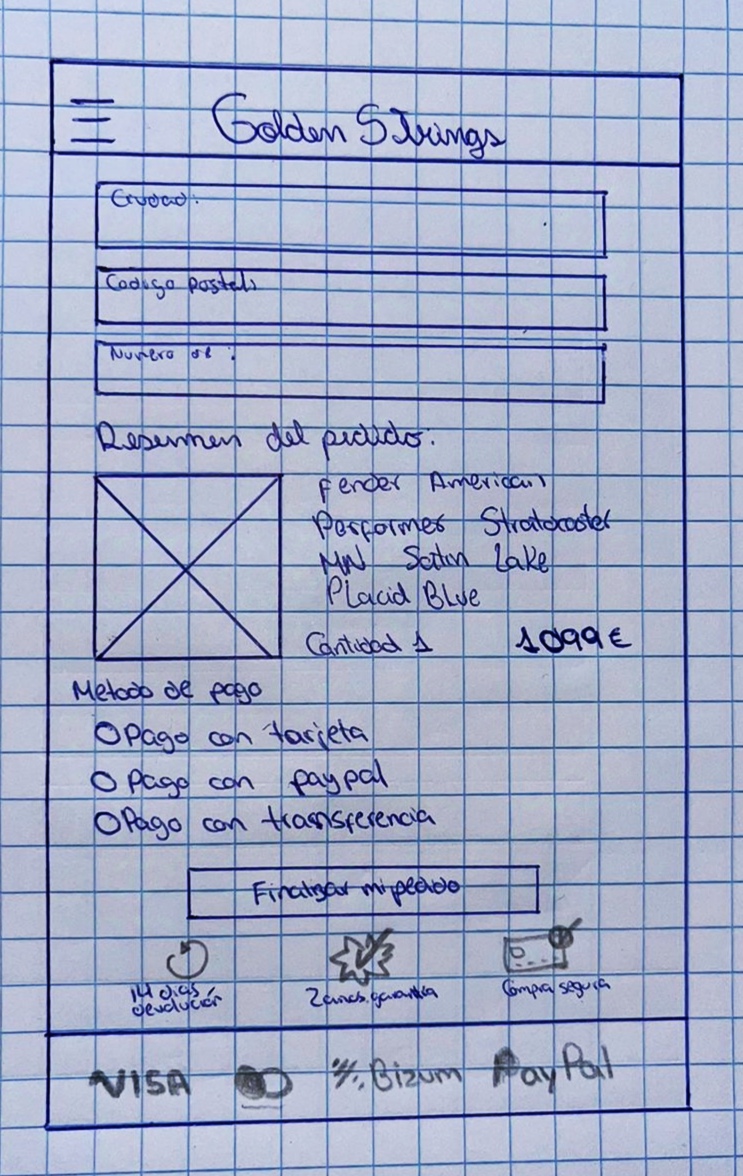 Golden Strings
Ciudad:
Codigo postal:
Numero de :
Resumen del pedido:
Fender American
Performer Stratocaster
MN Satin Lake
Placid Blue
Cantidad 1 1099€
Metodo de pago
Pago con tarjeta
Pago con paypal
Pago con transferencia
Finalizar mi pedido
14 dias
devolución
2 anos garantia
Compra segura
VISA Bizum PayPal